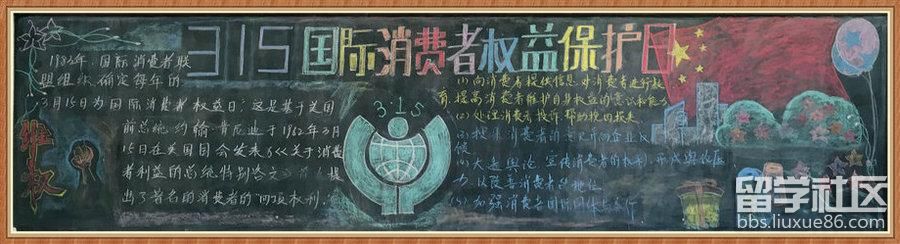 315国际消费者权益保护日
1983年,国际消费者联
盟组织确定每年的
3月15日为国际消费者权益日。这是基于美国
前总统约翰肯尼迪于1962年3月
15日在美国国会发表《关于消费
者利益的总统特别咨文》
出了著名的消费者的"四项权利".
维权
3·15
(1)向消费者提供信息,对消费者进行教
育,提高消费者维护自身权益的意识和能力
(2)处理消费者投诉,帮助挽回损失
(3)
(4)大造舆论,宣传消费者的权利,形成舆论压
力,以改善消费者的地位
(5)加强消费者国际团体与合作
留学社区
bbs.liuxue86.com